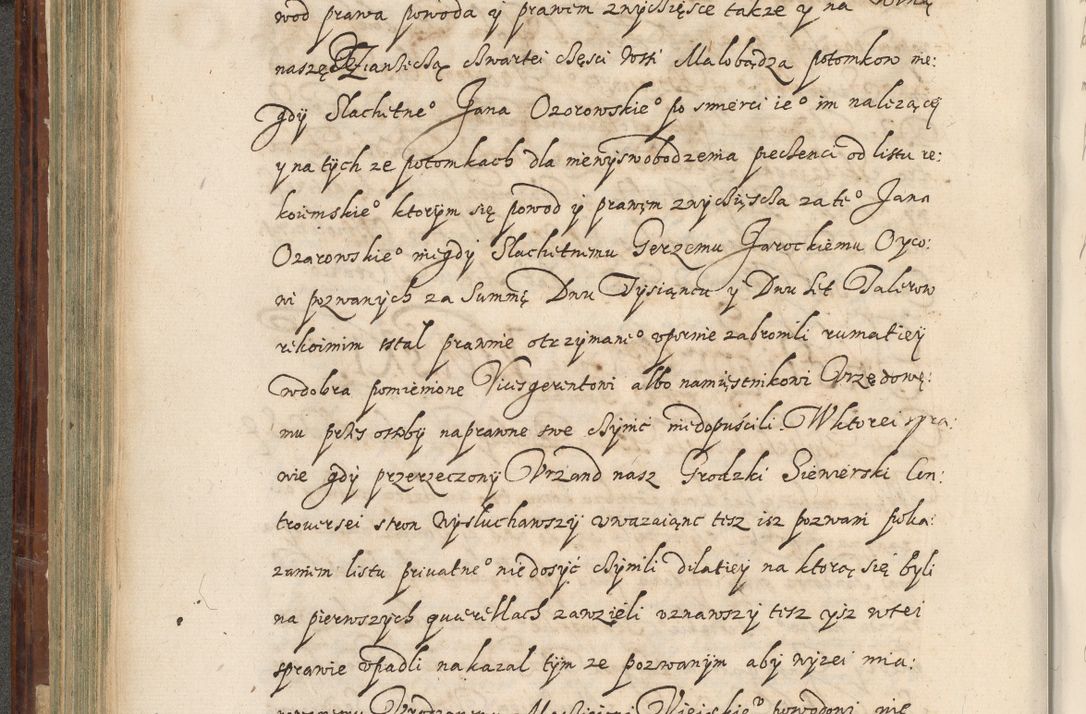 wod prawa powoda y prawem zwyciężce także y na
naszę Ziamską chwartei chęsci wsi Malobądza potomkow nie:
gdy Slachetne° Jana Ozorowskie° po smierci ie° im nalezącę
y na tych ze potomkach dla niewyswobodzenia piechenci od listu rę:
koiemskie° ktorym się powod y prawem zwyciescha za te° Jana
Ozarowskie° niegdy Slachetnemu Gerzemu Jarockiemu Oyco:
wi pozwanych za Summę Dwu Tysiąncu y Dwu set Talerow
rekoimim wstal prawnie otrzymane° vpornie zabronili rumatiey
wdobra pomienione Vicesgerentowi albo namięstnikowi Vrzędowę:
mu przes osoby naprawne swe chynic niedopuścili. W ktorei spra:
wie gdy przerzeczony Vrzand nasz Grodzki Siewierski Con:
trouersei stron wysluchawszy vwazaiąnc tesz isz pozwani poka:
zaniem listu priuatne° niedosyć chynili dilatiey na ktorą się byli
na pierwszych querellach zawzięli vznawszy tesz ysz wtei
sprawie vpadli nakazal tym ze pozwanym aby wyzei mia:
powodowi nie